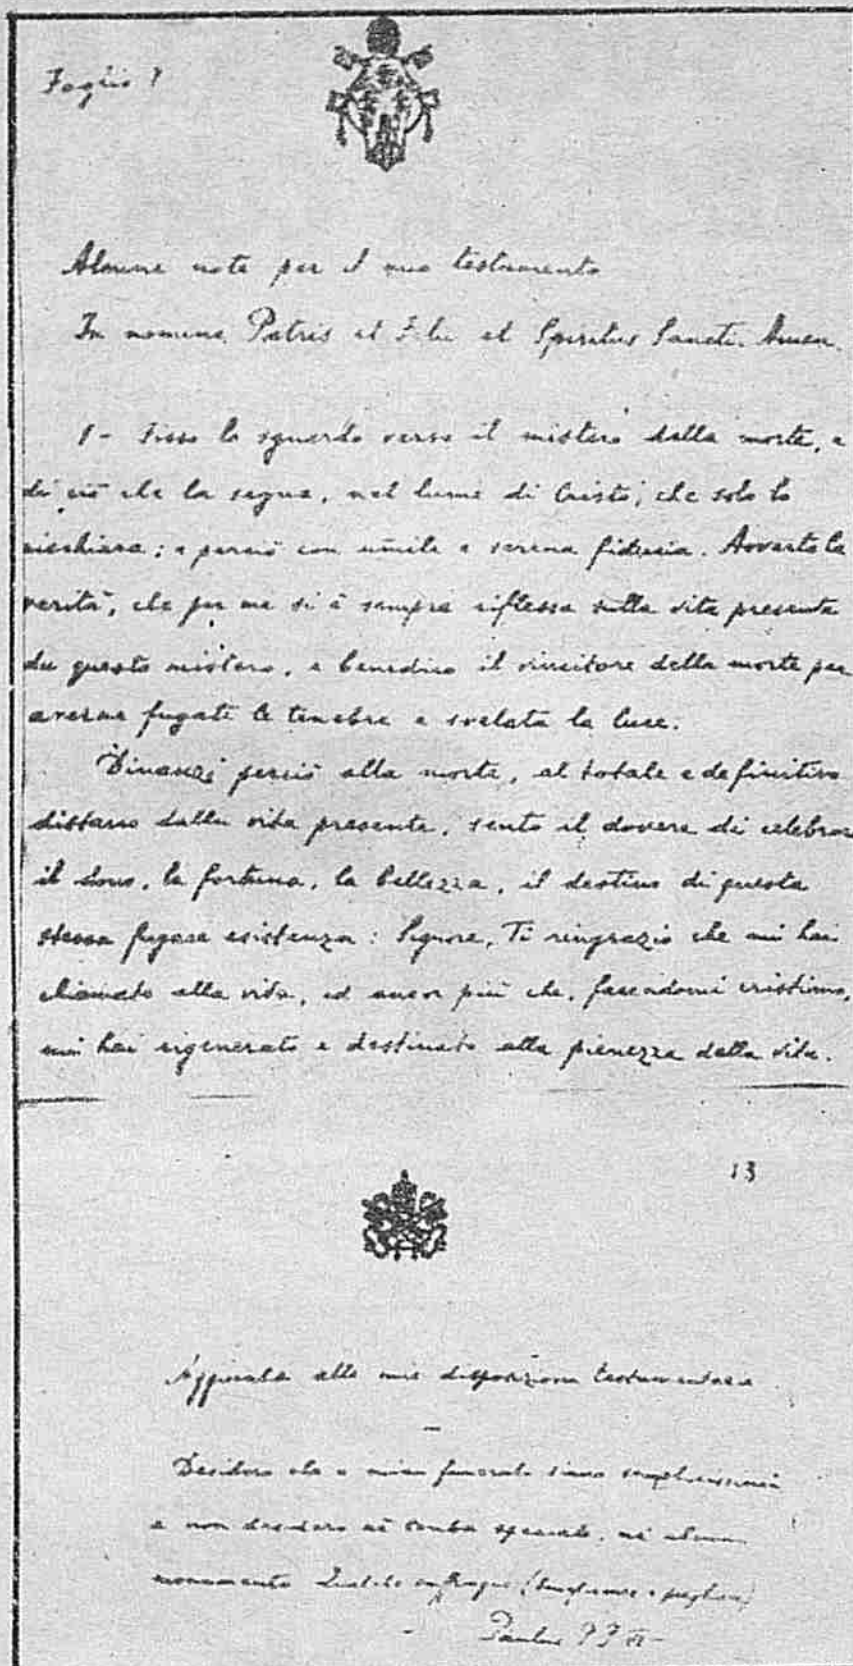 Foglio 1
Alcune note per il mio testamento
In nomine Patris et Filii et Spiritus Sancti. Amen.
1- Fisso lo sguardo verso il mistero della morte, e
di ciò che la segue, nel lume di Cristo, che solo lo
rischiara; e perciò con umile e serena fiducia. Avverto la
verità, che per me si è sempre riflessa sulla vita presente
da questo mistero, e benedico il vincitore della morte per
averne fugate le tenebre e svelata la luce.
Dinanzi perciò alla morte, al totale e definitivo
distacco dalla vita presente, sento il dovere di celebrare
il dono, la fortuna, la bellezza, il destino di questa
stessa fugace esistenza: Signore, Ti ringrazio che mi hai
chiamato alla vita, ed ancor più che, facendomi cristiano,
mi hai rigenerato e destinato alla pienezza della vita.
13
Aggiunta alle mie disposizioni testamentarie
Desidero che i miei funerali siano semplicissimi
e non desidero né tomba speciale, né alcun
monumento. Qualche suffragio (beneficenze e preghiere)
Paulus PP VI